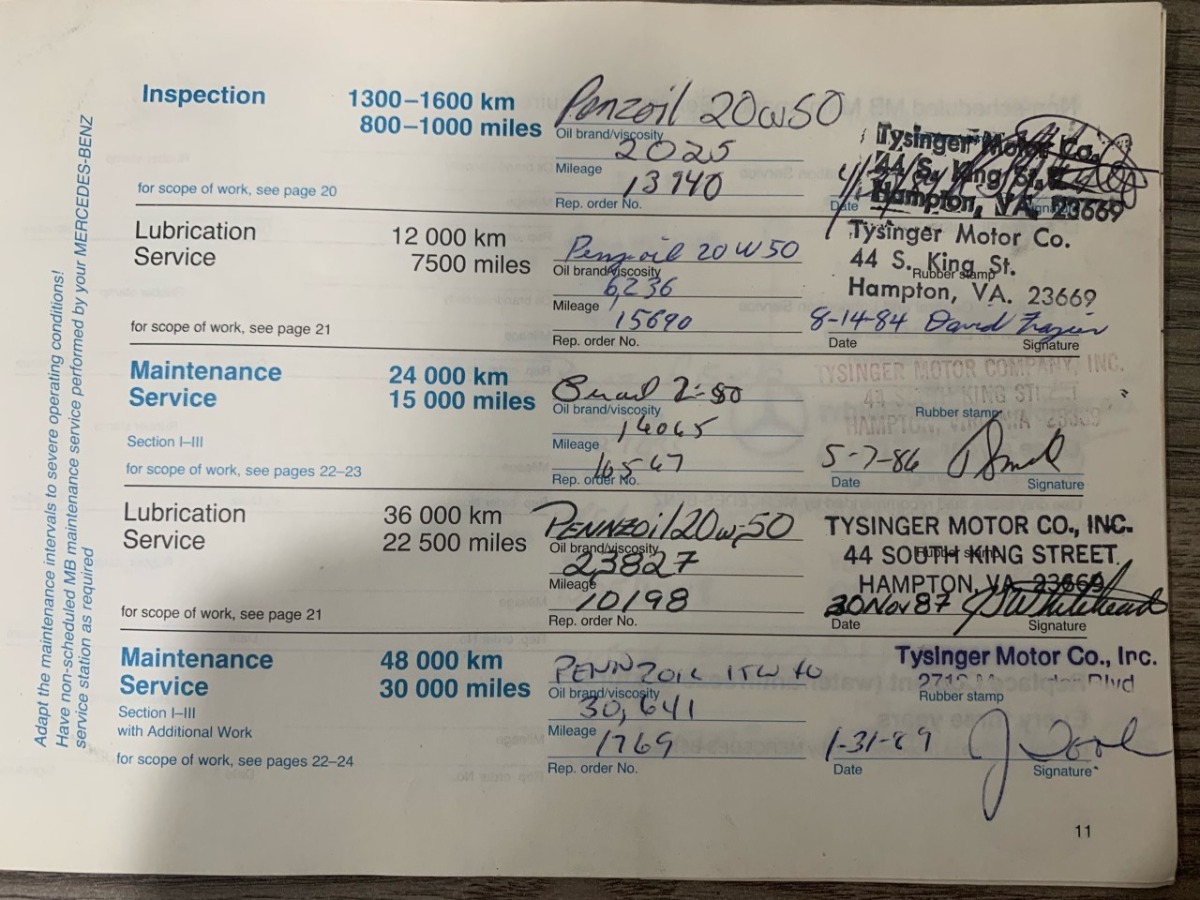 Inspection 1300–1600 km
800–1000 miles
Penzoil 20w50
Oil brand/viscosity
2025
Mileage
13940
Rep. order No.
for scope of work, see page 20
Tysinger Motor Co.
44 S. King St.
Hampton, VA. 23669
Date
Lubrication 12 000 km
Service 7500 miles
Penzoil 20W50
Oil brand/viscosity
6,236
Mileage
15690
Rep. order No.
for scope of work, see page 21
Tysinger Motor Co.
44 S. King St.
Rubber stamp
Hampton, VA. 23669
8-14-84 David Frazier
Date Signature
Maintenance 24 000 km
Service 15 000 miles
Oil brand/viscosity
16065
Mileage
16567
Rep. order No.
Section I–III
for scope of work, see pages 22–23
TYSINGER MOTOR COMPANY, INC.
SOUTH KING STREET
Rubber stamp
HAMPTON, VIRGINIA
5-7-86
Date Signature
Lubrication 36 000 km
Service 22 500 miles
PENNZOil 20w-50
Oil brand/viscosity
23827
Mileage
10198
Rep. order No.
for scope of work, see page 21
TYSINGER MOTOR CO., INC.
44 SOUTH KING STREET
Rubber stamp
HAMPTON, VA 23669
30 Nov 87 Whitehead
Date Signature
Maintenance 48 000 km
Service 30 000 miles
PENNZOIL 15W40
Oil brand/viscosity
30,641
Mileage
1769
Rep. order No.
Section I–III
with Additional Work
for scope of work, see pages 22–24
Tysinger Motor Co., Inc.
Blvd
Rubber stamp
1-31-89
Date Signature
Adapt the maintenance intervals to severe operating conditions!
Have non-scheduled MB maintenance service performed by your MERCEDES-BENZ
service station as required
11